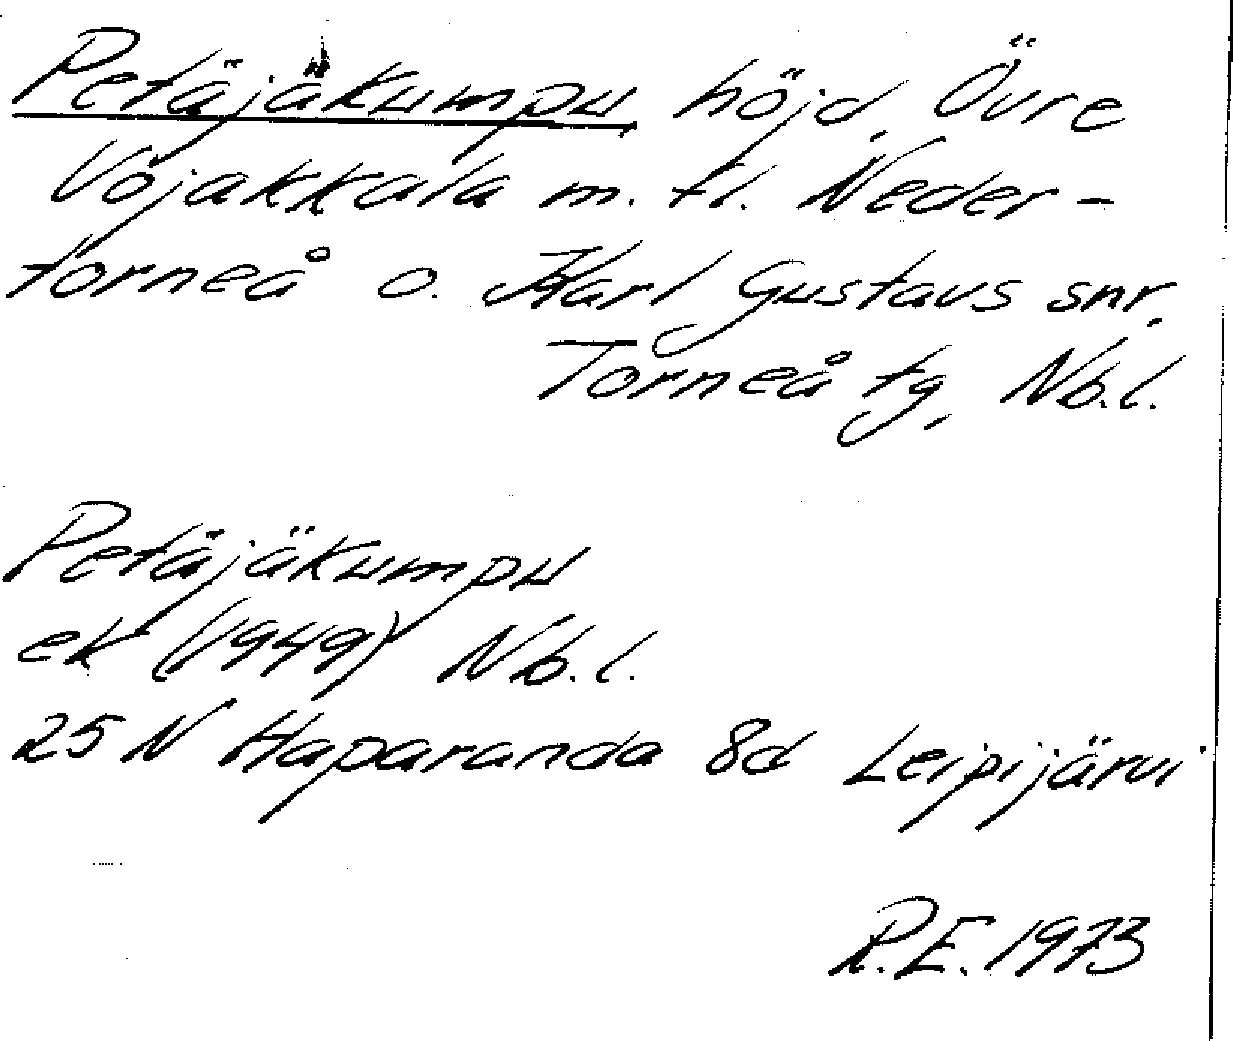 Petäjäkumpu, höjd, Övre
Vojakkala m. fl. Neder-
torneå o. Karl Gustavs snr,
Torneå tg, Nb.l.
Petäjäkumpu
ek (1949) Nb.l.
25 N Haparanda 8d Leipijärvi
R.E. 1973